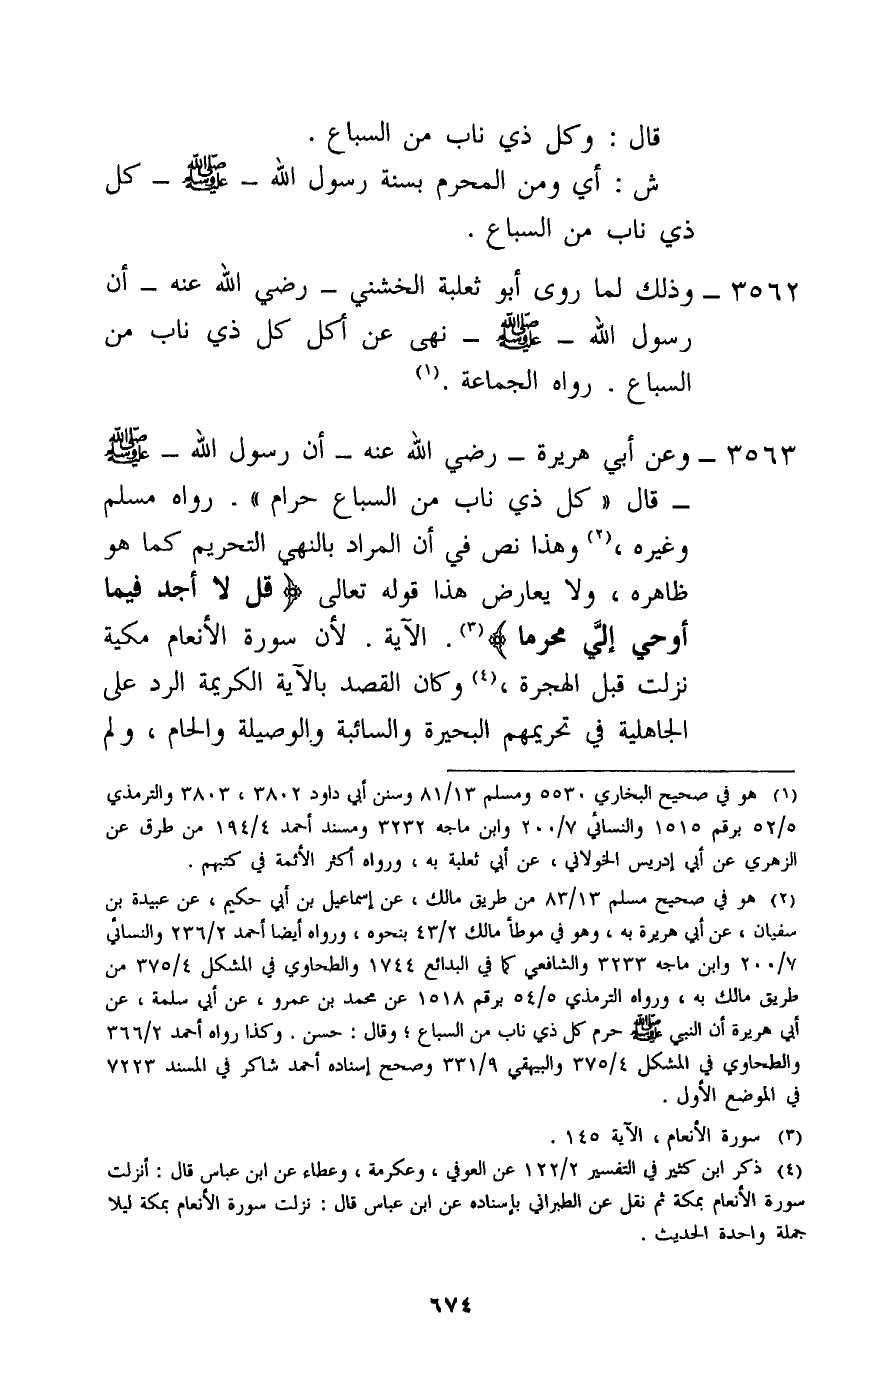 قال : وكل ذي ناب من السباع .
ش : أي ومن المحرم بسنة رسول الله – ﷺ – كل
ذي ناب من السباع .
٣٥٦٢ – وذلك لما روى أبو ثعلبة الخشني – رضي الله عنه – أن
رسول الله – ﷺ – نهى عن أكل كل ذي ناب من
السباع . رواه الجماعة .(١)
٣٥٦٣ – وعن أبي هريرة – رضي الله عنه – أن رسول الله – ﷺ
– قال « كل ذي ناب من السباع حرام » . رواه مسلم
وغيره ،(٢) وهذا نص في أن المراد بالنهي التحريم كما هو
ظاهره ، ولا يعارض هذا قوله تعالى ﴿ قل لا أجد فيما
أوحي إليَّ محرما ﴾(٣) . الآية . لأن سورة الأنعام مكية
نزلت قبل الهجرة ،(٤) وكان القصد بالآية الكريمة الرد على
الجاهلية في تحريمهم البحيرة والسائبة والوصيلة والحام ، ولم
(١) هو في صحيح البخاري ٥٥٣٠ ومسلم ٨١/١٣ وسنن أبي داود ٣٨٠٢ ، ٣٨٠٣ والترمذي
٥٢/٥ برقم ١٥١٥ والنسائي ٢٠٠/٧ وابن ماجه ٣٢٣٢ ومسند أحمد ١٩٤/٤ من طرق عن
الزهري عن أبي إدريس الخولاني ، عن أبي ثعلبة به ، ورواه أكثر الأئمة في كتبهم .
(٢) هو في صحيح مسلم ٨٣/١٣ من طريق مالك ، عن إسماعيل بن أبي حكيم ، عن عبيدة بن
سفيان ، عن أبي هريرة به ، وهو في موطأ مالك ٤٣/٢ بنحوه ، ورواه أيضا أحمد ٢٣٦/٢ والنسائي
٢٠٠/٧ وابن ماجه ٣٢٣٣ والشافعي كما في البدائع ١٧٤٤ والطحاوي في المشكل ٣٧٥/٤ من
طريق مالك به ، ورواه الترمذي ٥٤/٥ برقم ١٥١٨ عن محمد بن عمرو ، عن أبي سلمة ، عن
أبي هريرة أن النبي ﷺ حرم كل ذي ناب من السباع ؛ وقال : حسن . وكذا رواه أحمد ٣٦٦/٢
والطحاوي في المشكل ٣٧٥/٤ والبيهقي ٣٣١/٩ وصحح إسناده أحمد شاكر في المسند ٧٢٢٣
في الموضع الأول .
(٣) سورة الأنعام ، الآية ١٤٥ .
(٤) ذكر ابن كثير في التفسير ١٢٢/٢ عن العوفي ، وعكرمة ، وعطاء عن ابن عباس قال : أنزلت
سورة الأنعام بمكة ثم نقل عن الطبراني بإسناده عن ابن عباس قال : نزلت سورة الأنعام بمكة ليلا
جملة واحدة الحديث .
٦٧٤